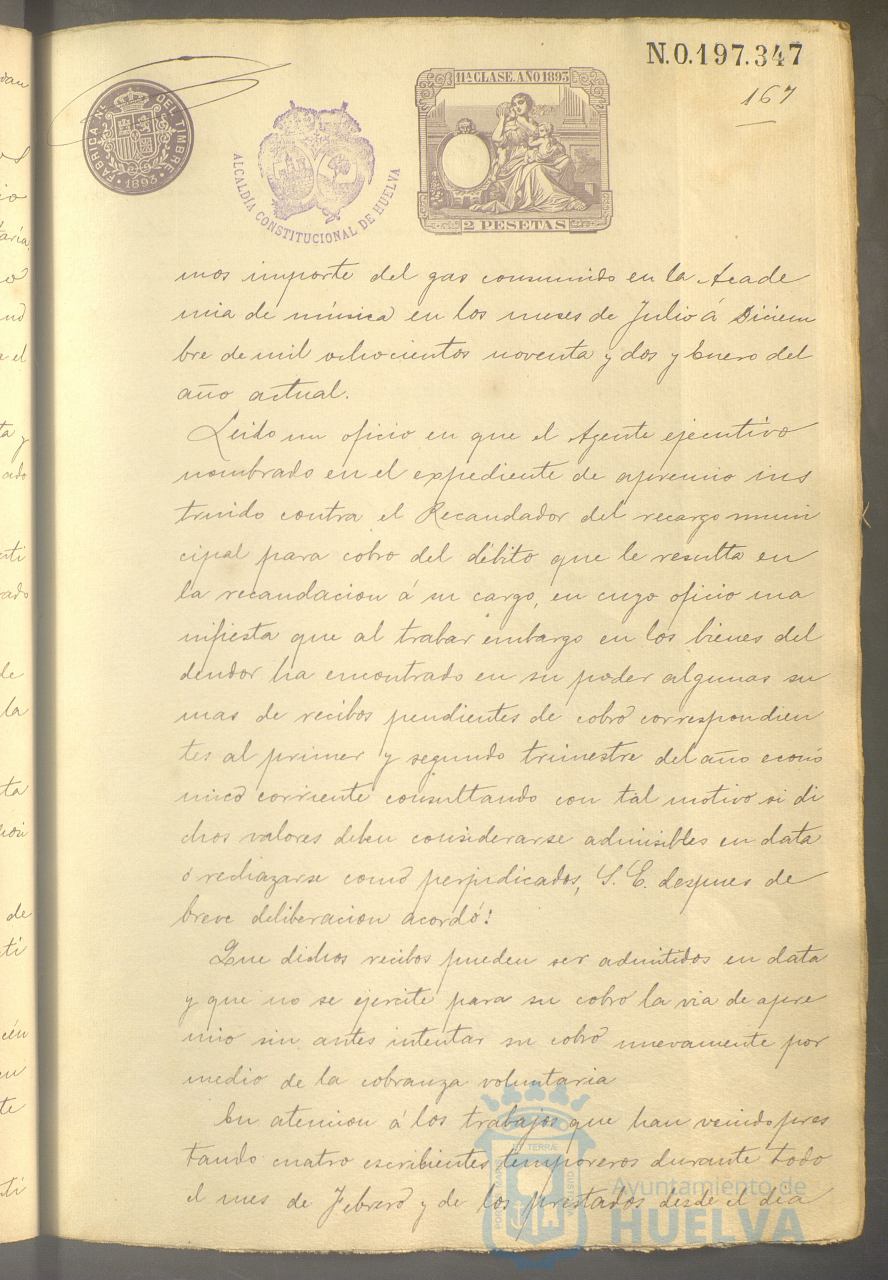 N.0.197.347
167
FABRICA NAL DEL TIMBRE
1893
ALCALDÍA CONSTITUCIONAL DE HUELVA
11ª CLASE. AÑO 1893
2 PESETAS
mos importe del gas consumido en la Acade
mia de música en los meses de Julio á Diciem
bre de mil ochocientos noventa y dos y Enero del
año actual.
Leido un oficio en que el Agente ejecutivo
nombrado en el expediente de apremio ins
truido contra el Recaudador del recargo muni
cipal para cobro del débito que le resulta en
la recaudacion á su cargo, en cuyo oficio ma
nifiesta que al trabar embargo en los bienes del
deudor ha encontrado en su poder algunas su
mas de recibos pendientes de cobro correspondien
tes al primer y segundo trimestre del año econó
mico corriente consultando con tal motivo si di
chos valores deben considerarse admisibles en data
ó rechazarse como perjudicados, S. E. despues de
breve deliberacion acordó:
Que dichos recibos pueden ser admitidos en data
y que no se ejercite para su cobro la via de apre
mio sin antes intentar su cobro nuevamente por
medio de la cobranza voluntaria
En atencion á los trabajos que han venido pres
tando cuatro escribientes temporeros durante todo
el mes de Febrero y de los prestados desde el dia
Ayuntamiento de
HUELVA